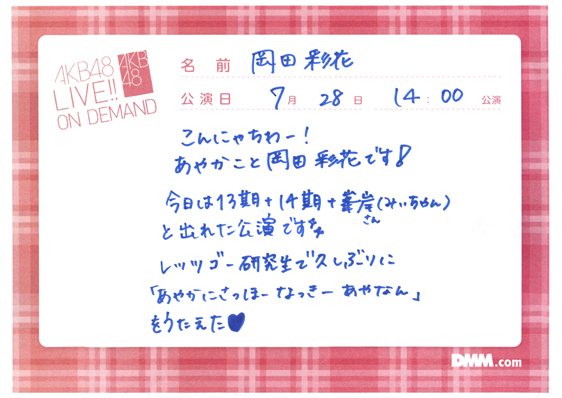 AKB48
LIVE!!
ON DEMAND
AKB
48
名 前 岡田 彩花
公演日 7月 28日 14:00 公演
こんにゃちわー!
あやかこと岡田 彩花です!
今日は13期+14期+峯岸(みぃちゃん)
さん
と出れた公演です
レッツゴー研究生で久しぶりに
「あやかにさっほー なっきー あやなん」
をうたえた♥
DMM.com